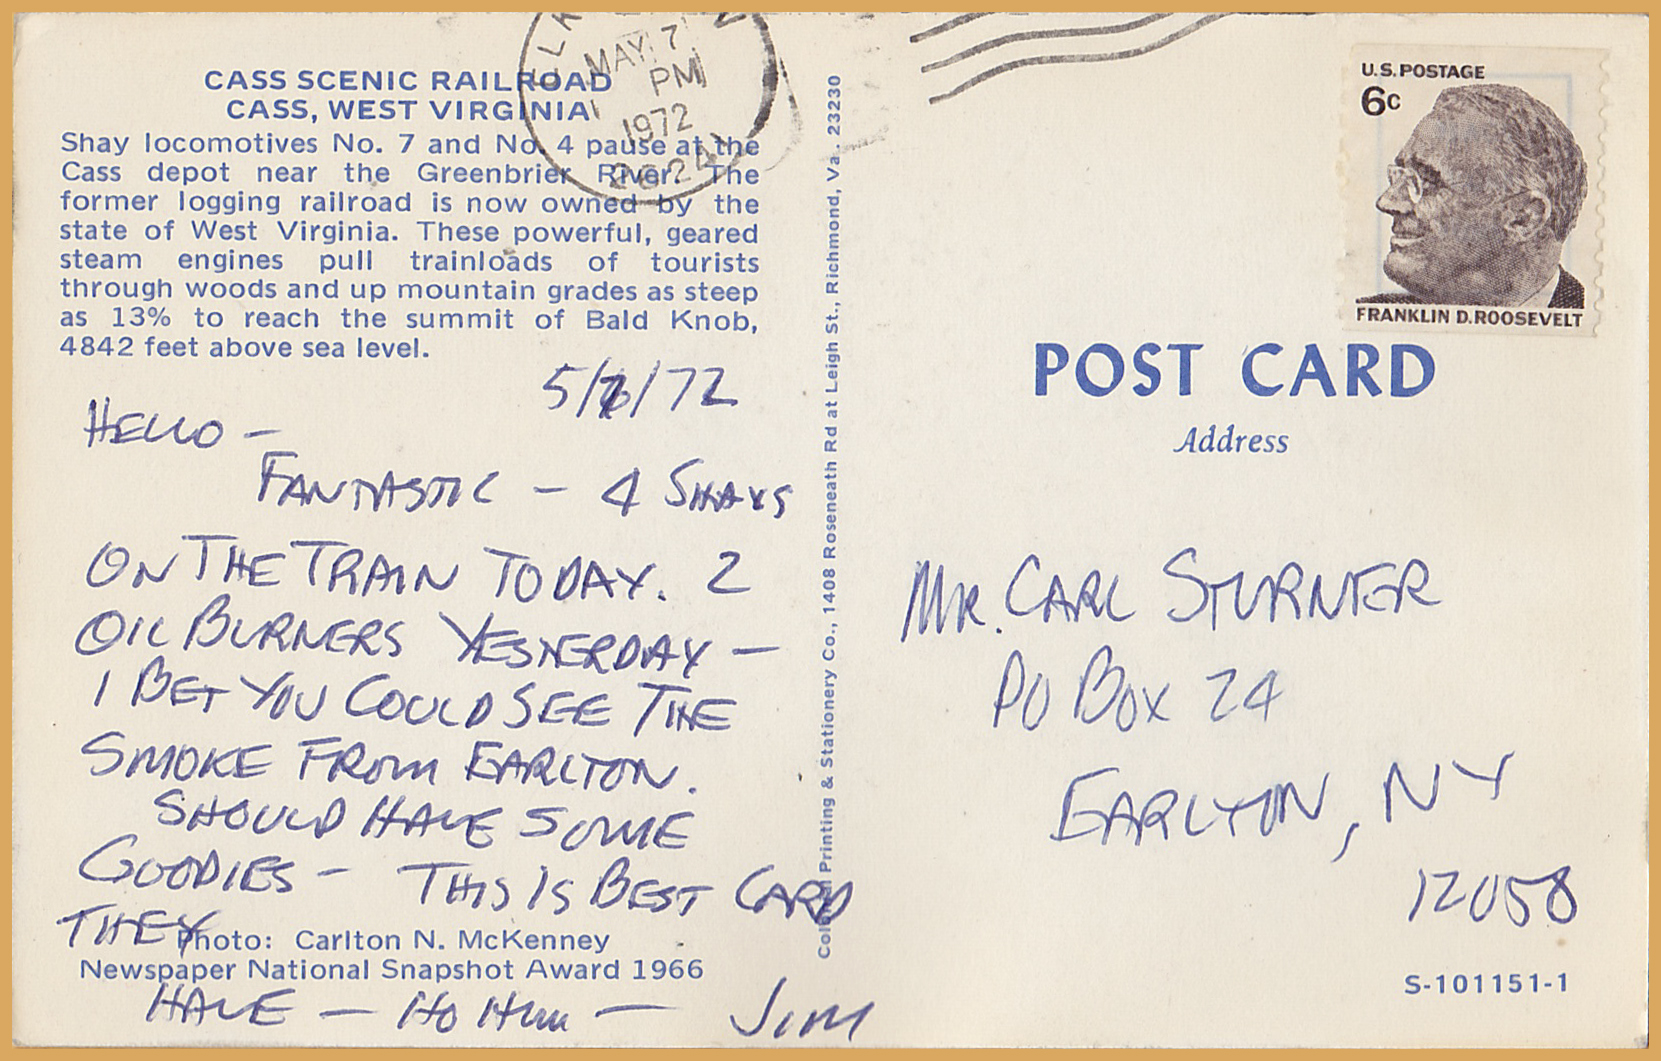 CASS SCENIC RAILROAD
CASS, WEST VIRGINIA
Shay locomotives No. 7 and No. 4 pause at the
Cass depot near the Greenbrier River. The
former logging railroad is now owned by the
state of West Virginia. These powerful, geared
steam engines pull trainloads of tourists
through woods and up mountain grades as steep
as 13% to reach the summit of Bald Knob,
4842 feet above sea level.
MAY 7
PM
1972
5/ /72
HELLO –
FANTASTIC – 4 SHAYS
ON THE TRAIN TODAY. 2
OIL BURNERS YESTERDAY –
I BET YOU COULD SEE THE
SMOKE FROM EARLTON.
SHOULD HAVE SOME
GOODIES – THIS IS BEST CARD
THEY
Photo: Carlton N. McKenney
Newspaper National Snapshot Award 1966
HAVE – HO HUM – JIM
Colonial Printing & Stationery Co., 1408 Roseneath Rd at Leigh St., Richmond, Va. 23230
U.S. POSTAGE
6c
FRANKLIN D. ROOSEVELT
POST CARD
Address
MR. CARL STURNER
PO BOX 24
EARLTON, NY
12058
S-101151-1